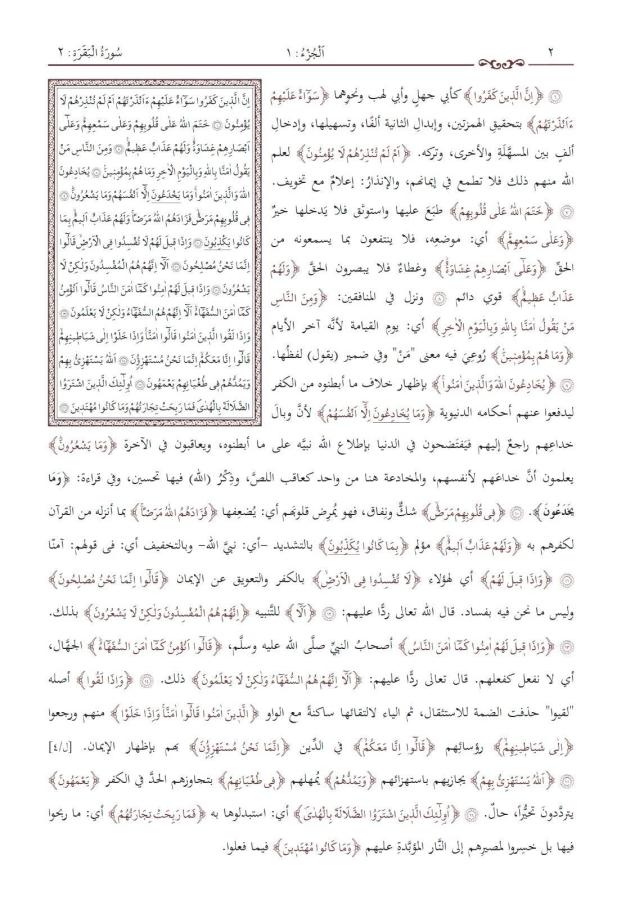 ٢ اَلْجُزْءُ: ١ سُورَةُ الْبَقَرَةِ: ٢
إِنَّ الَّذِينَ كَفَرُوا سَوَاءٌ عَلَيْهِمْ ءَاَنْذَرْتَهُمْ اَمْ لَمْ تُنْذِرْهُمْ لَا
يُؤْمِنُونَ ۝ خَتَمَ اللّٰهُ عَلٰى قُلُوبِهِمْ وَعَلٰى سَمْعِهِمْ وَعَلٰٓى
اَبْصَارِهِمْ غِشَاوَةٌ وَلَهُمْ عَذَابٌ عَظِيمٌ ۝ وَمِنَ النَّاسِ مَنْ
يَقُولُ اٰمَنَّا بِاللّٰهِ وَبِالْيَوْمِ الْاٰخِرِ وَمَا هُمْ بِمُؤْمِنِينَ ۝ يُخَادِعُونَ
اللّٰهَ وَالَّذِينَ اٰمَنُوا وَمَا يَخْدَعُونَ اِلَّٓا اَنْفُسَهُمْ وَمَا يَشْعُرُونَ ۝
فِى قُلُوبِهِمْ مَرَضٌ فَزَادَهُمُ اللّٰهُ مَرَضًا وَلَهُمْ عَذَابٌ اَلِيمٌ بِمَا
كَانُوا يَكْذِبُونَ ۝ وَاِذَا قِيلَ لَهُمْ لَا تُفْسِدُوا فِى الْاَرْضِ قَالُٓوا
اِنَّمَا نَحْنُ مُصْلِحُونَ ۝ اَلَٓا اِنَّهُمْ هُمُ الْمُفْسِدُونَ وَلٰكِنْ لَا
يَشْعُرُونَ ۝ وَاِذَا قِيلَ لَهُمْ اٰمِنُوا كَمَٓا اٰمَنَ النَّاسُ قَالُٓوا اَنُؤْمِنُ
كَمَٓا اٰمَنَ السُّفَهَٓاءُ اَلَٓا اِنَّهُمْ هُمُ السُّفَهَٓاءُ وَلٰكِنْ لَا يَعْلَمُونَ ۝
وَاِذَا لَقُوا الَّذِينَ اٰمَنُوا قَالُٓوا اٰمَنَّا وَاِذَا خَلَوْا اِلٰى شَيَاطِينِهِمْ
قَالُٓوا اِنَّا مَعَكُمْ اِنَّمَا نَحْنُ مُسْتَهْزِؤُنَ ۝ اَللّٰهُ يَسْتَهْزِئُ بِهِمْ
وَيَمُدُّهُمْ فِى طُغْيَانِهِمْ يَعْمَهُونَ ۝ اُولٰٓئِكَ الَّذِينَ اشْتَرَوُا
الضَّلَالَةَ بِالْهُدٰى فَمَا رَبِحَتْ تِجَارَتُهُمْ وَمَا كَانُوا مُهْتَدِينَ ۝
۝ ﴿إِنَّ الَّذِينَ كَفَرُوا﴾ كأبي جهلٍ وأبي لهب ونحوِهما ﴿سَوَٓاءٌ عَلَيْهِمْ
ءَاَنْذَرْتَهُمْ﴾ بتحقيق الهمزتين، وإبدال الثانية ألفًا، وتسهيلها، وإدخالِ
ألفٍ بين المسهَّلَةِ والأخرى، وتركه. ﴿اَمْ لَمْ تُنْذِرْهُمْ لَا يُؤْمِنُونَ﴾ لعلم
الله منهم ذلك فلا تطمع في إيمانهم، والإنذارُ: إعلامٌ مع تخويف.
۝ ﴿خَتَمَ اللّٰهُ عَلٰى قُلُوبِهِمْ﴾ طبَعَ عليها واستوثق فلا يَدخلها خيرٌ
﴿وَعَلٰى سَمْعِهِمْ﴾ أي: موضعِه، فلا ينتفعون بما يسمعونه من
الحقِّ ﴿وَعَلٰٓى اَبْصَارِهِمْ غِشَاوَةٌ﴾ وغطاءٌ فلا يبصرون الحقَّ ﴿وَلَهُمْ
عَذَابٌ عَظِيمٌ﴾ قوي دائم ۝ ونزل في المنافقين: ﴿وَمِنَ النَّاسِ
مَنْ يَقُولُ اٰمَنَّا بِاللّٰهِ وَبِالْيَوْمِ الْاٰخِرِ﴾ أي: يوم القيامة لأنَّه آخر الأيام
﴿وَمَا هُمْ بِمُؤْمِنِينَ﴾ رُوعِيَ فيه معنى "مَنْ" وفي ضمير (يقول) لفظُها.
۝ ﴿يُخَادِعُونَ اللّٰهَ وَالَّذِينَ اٰمَنُوا﴾ بإظهار خلاف ما أبطنوه من الكفر
ليدفعوا عنهم أحكامه الدنيوية ﴿وَمَا يُخَادِعُونَ اِلَّٓا اَنْفُسَهُمْ﴾ لأنَّ وبالَ
خداعِهم راجعٌ إليهم فيَفتَضحون في الدنيا بإطلاع الله نبيَّه على ما أبطنوه، ويعاقبون في الآخرة ﴿وَمَا يَشْعُرُونَ﴾
يعلمون أنَّ خداعَهم لأنفسهم، والمخادعة هنا من واحد كعاقب اللصَّ، وذِكْرُ (الله) فيها تحسين، وفي قراءة: ﴿وَمَا
يَخْدَعُونَ﴾. ۝ ﴿فِى قُلُوبِهِمْ مَرَضٌ﴾ شكٌّ ونِفاق، فهو يُمرِض قلوبَهم أي: يُضعِفها ﴿فَزَادَهُمُ اللّٰهُ مَرَضًا﴾ بما أنزله من القرآن
لكفرهم به ﴿وَلَهُمْ عَذَابٌ اَلِيمٌ﴾ مؤلم ﴿بِمَا كَانُوا يُكَذِّبُونَ﴾ بالتشديد -أي: نبيَّ الله- وبالتخفيف أي: فى قولهم: آمنّا
۝ ﴿وَاِذَا قِيلَ لَهُمْ﴾ أي لهؤلاء ﴿لَا تُفْسِدُوا فِى الْاَرْضِ﴾ بالكفر والتعويق عن الإيمان ﴿قَالُٓوا اِنَّمَا نَحْنُ مُصْلِحُونَ﴾
وليس ما نحن فيه بفساد. قال الله تعالى ردًّا عليهم: ۝ ﴿اَلَٓا﴾ للتَّنبيه ﴿اِنَّهُمْ هُمُ الْمُفْسِدُونَ وَلٰكِنْ لَا يَشْعُرُونَ﴾ بذلك.
۝ ﴿وَاِذَا قِيلَ لَهُمْ اٰمِنُوا كَمَٓا اٰمَنَ النَّاسُ﴾ أصحابُ النبيِّ صلَّى الله عليه وسلَّم، ﴿قَالُٓوا اَنُؤْمِنُ كَمَٓا اٰمَنَ السُّفَهَٓاءُ﴾ الجهَّال،
أي لا نفعل كفعلهم. قال تعالى ردًّا عليهم: ﴿اَلَٓا اِنَّهُمْ هُمُ السُّفَهَٓاءُ وَلٰكِنْ لَا يَعْلَمُونَ﴾ ذلك. ۝ ﴿وَاِذَا لَقُوا﴾ أصله
"لقيوا" حذفت الضمة للاستثقال، ثم الياء لالتقائها ساكنةً مع الواو ﴿الَّذِينَ اٰمَنُوا قَالُٓوا اٰمَنَّا وَاِذَا خَلَوْا﴾ منهم ورجعوا
﴿اِلٰى شَيَاطِينِهِمْ﴾ رؤسائِهم ﴿قَالُٓوا اِنَّا مَعَكُمْ﴾ في الدِّين ﴿اِنَّمَا نَحْنُ مُسْتَهْزِؤُنَ﴾ بهم بإظهار الإيمان. [ل/٤]
۝ ﴿اَللّٰهُ يَسْتَهْزِئُ بِهِمْ﴾ يجازيهم باستهزائهم ﴿وَيَمُدُّهُمْ﴾ يُمهلهم ﴿فِى طُغْيَانِهِمْ﴾ بتجاوزهم الحدَّ في الكفر ﴿يَعْمَهُونَ﴾
يتردَّدونَ تحيُّراً، حالٌ. ۝ ﴿اُولٰٓئِكَ الَّذِينَ اشْتَرَوُا الضَّلَالَةَ بِالْهُدٰى﴾ أي: استبدلوها به ﴿فَمَا رَبِحَتْ تِجَارَتُهُمْ﴾ أي: ما ربحوا
فيها بل خسِروا لمصيرهم إلى النَّار المؤبَّدةِ عليهم ﴿وَمَا كَانُوا مُهْتَدِينَ﴾ فيما فعلوا.